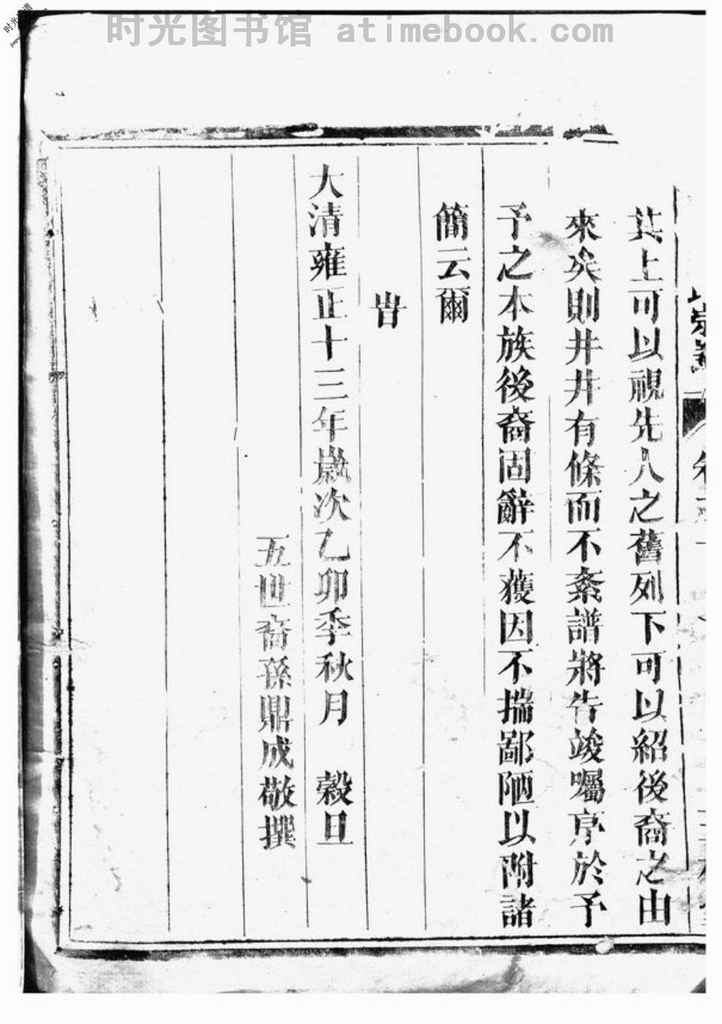 时光图书馆 atimebook.com
其上可以視先人之舊列下可以紹後裔之由
來矣則井井有條而不紊譜將告竣囑序於予
予之本族後裔固辭不獲因不揣鄙陋以附諸
簡云爾
旹
大清雍正十三年歲次乙卯季秋月 穀旦
五世裔孫鼎成敬撰